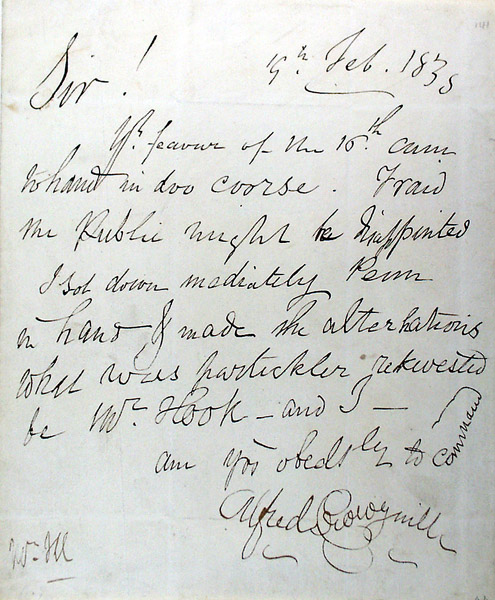 Sir!
Feb. 1838
Yr. favour of the 16th. cum
to hand in doo coorse. Fraid
the Public might be disappinted
I sot down mediately Penn
in hand & made the alterhations
what was partickler rekwested
be Mr. Hook - and I -
am yrs obedtly to command
Alfred Crowquill